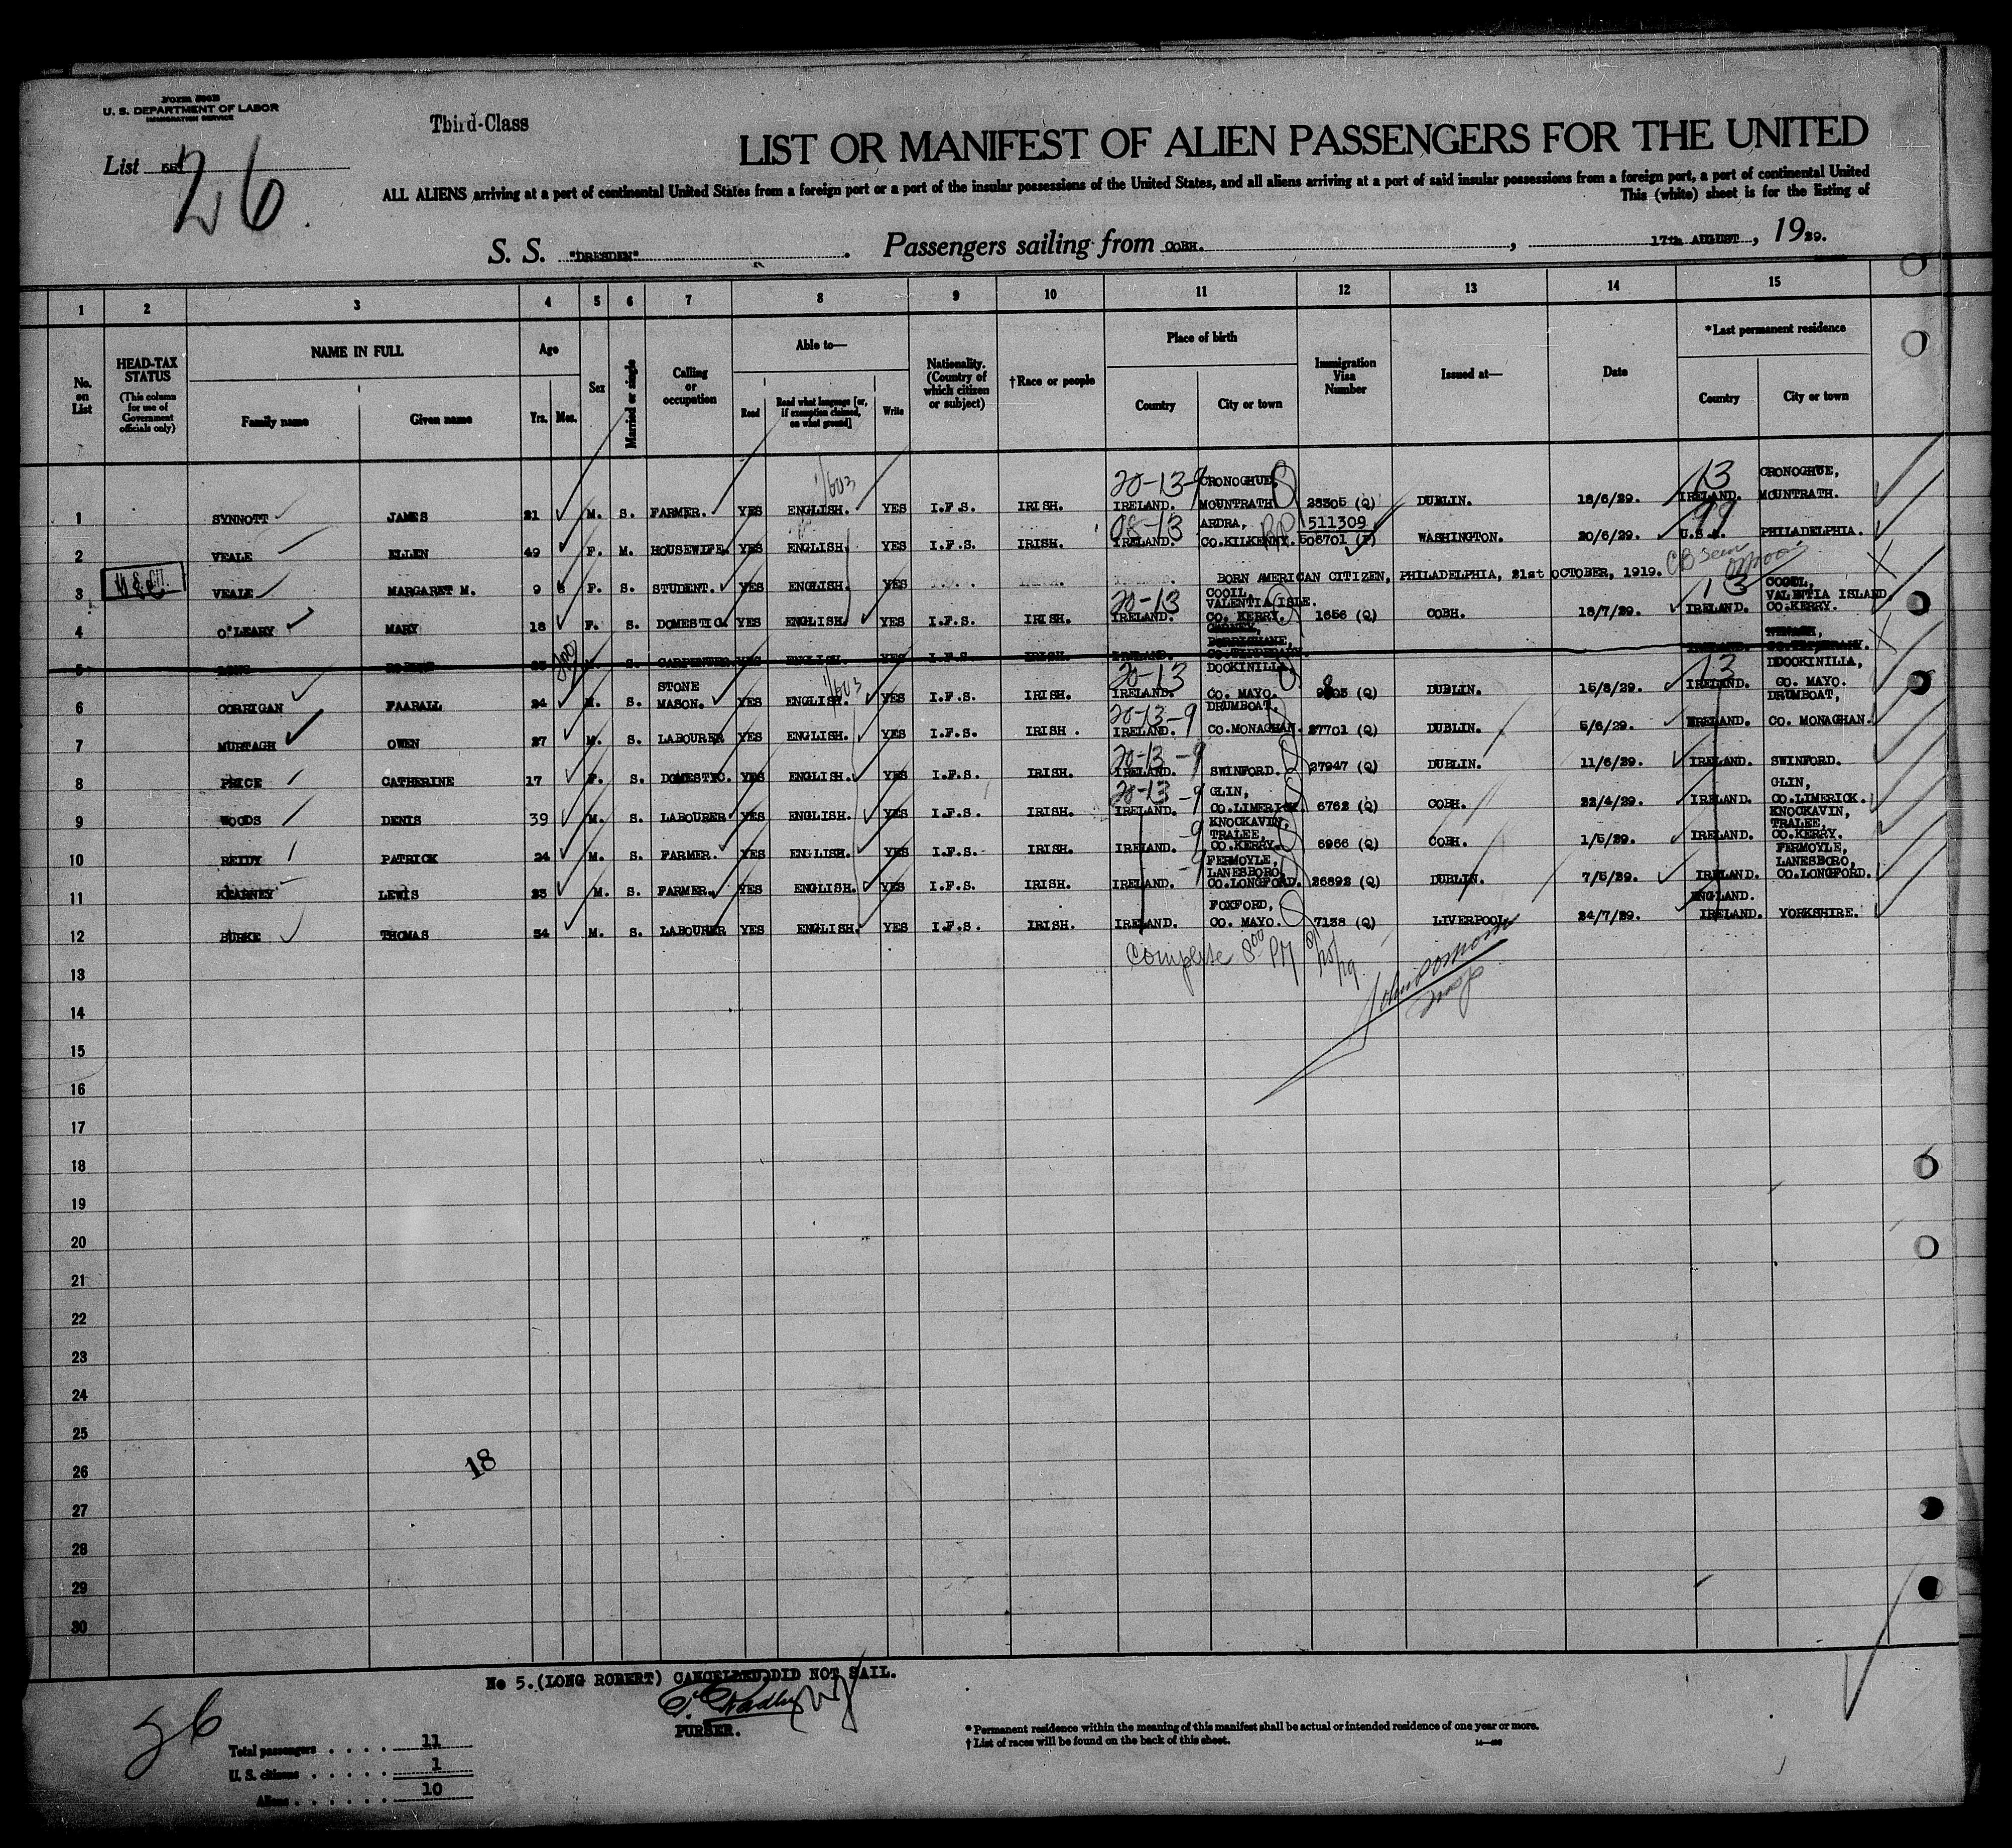 Form 500B
U. S. DEPARTMENT OF LABOR
IMMIGRATION SERVICE
Third-Class
LIST OR MANIFEST OF ALIEN PASSENGERS FOR THE UNITED
List 26
ALL ALIENS arriving at a port of continental United States from a foreign port or a port of the insular possessions of the United States, and all aliens arriving at a port of said insular possessions from a foreign port, a port of continental United
This (white) sheet is for the listing of
S. S. "DRESDEN". Passengers sailing from COBH. , 17th AUGUST , 1929.
1 2 3 4 5 6 7 8 9 10 11 12 13 14 15
No. on List
HEAD-TAX STATUS (This column for use of Government officials only)
NAME IN FULL
Family name Given name
Age
Yrs. Mos.
Sex
Married or single
Calling or occupation
Able to—
Read Read what language [or, if exemption claimed, on what ground] Write
Nationality. (Country of which citizen or subject)
†Race or people
Place of birth
Country City or town
Immigration Visa Number
Issued at—
Date
*Last permanent residence
Country City or town
1 SYNNOTT JAMES 21 M. S. FARMER. YES ENGLISH. YES I.F.S. IRISH. 20-13-9 IRELAND. CRONOGHUE, MOUNTRATH 28305 (Q) DUBLIN. 18/6/29. 13 IRELAND. CRONOGHUE, MOUNTRATH.
2 VEALE ELLEN 49 F. M. HOUSEWIFE. YES ENGLISH. YES I.F.S. IRISH. 08-13 IRELAND. ARDRA, CO.KILKENNY. 511309 506701 WASHINGTON. 20/6/29. 99 U.S.A. PHILADELPHIA.
3 VEALE MARGARET M. 9 F. S. STUDENT. YES ENGLISH. YES BORN AMERICAN CITIZEN, PHILADELPHIA, 21st OCTOBER, 1919. CB seen
4 O'LEARY MARY 18 F. S. DOMESTIC. YES ENGLISH. YES I.F.S. IRISH. 20-13 IRELAND. COOIL, VALENTIA ISLE. CO. KERRY. 1656 (Q) COBH. 18/7/29. 13 IRELAND. COOIL, VALENTIA ISLAND CO.KERRY.
5 S. CARPENTER YES ENGLISH. YES I.F.S IRISH. IRELAND.
6 CORRIGAN FAARALL 24 M. S. STONE MASON. YES ENGLISH. YES I.F.S. IRISH. 20-13 IRELAND. DOOKINILLA, CO. MAYO. (Q) DUBLIN. 15/8/29. 13 IRELAND. DOOKINILIA, CO. MAYO.
7 MURTAGH OWEN 27 M. S. LABOURER YES ENGLISH. YES I.F.S. IRISH. 20-13-9 IRELAND. DRUMBOAT, CO.MONAGHAN. 27701 (Q) DUBLIN. 5/6/29. IRELAND. DRUMBOAT, CO. MONAGHAN.
8 PRICE CATHERINE 17 F. S. DOMESTIC. YES ENGLISH. YES I.F.S. IRISH. 20-13-9 IRELAND. SWINFORD. 27947 (Q) DUBLIN. 11/6/29. IRELAND. SWINFORD.
9 WOODS DENIS 39 M. S. LABOURER YES ENGLISH. YES I.F.S. IRISH. 20-13-9 IRELAND. GLIN, CO.LIMERICK. 6762 (Q) COBH. 22/4/29. IRELAND. GLIN, CO.LIMERICK.
10 REIDY PATRICK 24 M. S. FARMER. YES ENGLISH. YES I.F.S. IRISH. -9 IRELAND. KNOCKAVIN, TRALEE, CO.KERRY. 6966 (Q) COBH. 1/5/29. IRELAND. KNOCKAVIN, TRALEE, CO.KERRY.
11 KEARNEY LEWIS 23 M. S. FARMER. YES ENGLISH. YES I.F.S. IRISH. -9 IRELAND. FERMOYLE, LANESBORO, CO.LONGFORD. 26892 (Q) DUBLIN. 7/5/29. IRELAND. FERMOYLE, LANESBORO, CO.LONGFORD.
12 BURKE THOMAS 34 M. S. LABOURER YES ENGLISH. YES I.F.S. IRISH. IRELAND. FOXFORD, CO. MAYO. 7138 (Q) LIVERPOOL. 24/7/29. ENGLAND. IRELAND. YORKSHIRE.
Complete 8 00 PM
13
14
15
16
17
18
19
20
21
22
23
24
25
26
18
27
28
29
30
No 5.(LONG ROBERT) CANCELLED,DID NOT SAIL.
PURSER.
26
Total passengers . . . . 11
U. S. citizens . . . . . . 1
Aliens . . . . . . 10
* Permanent residence within the meaning of this manifest shall be actual or intended residence of one year or more.
† List of races will be found on the back of this sheet.